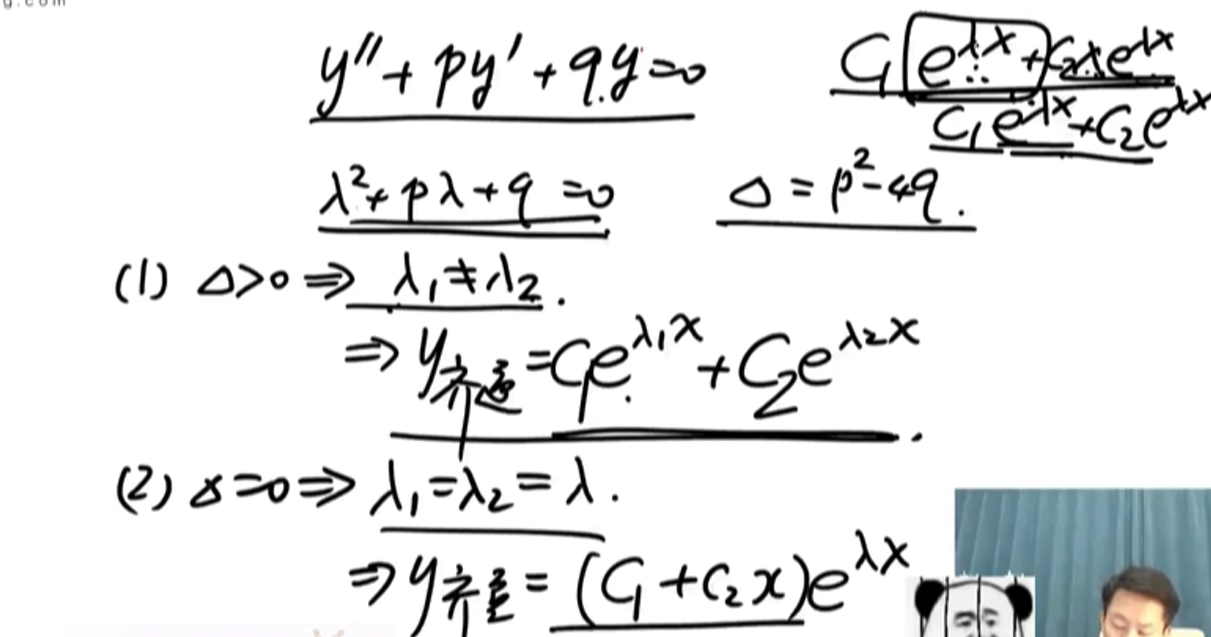 g.com
y″ + py′ + qy = 0
C₁e^{λx} + C₂xe^{λx}
C₁e^{λx} + C₂e^{λx}
λ² + pλ + q = 0
Δ = p² - 4q.
(1) Δ > 0 ⇒ λ₁ ≠ λ₂.
⇒ y齐通 = C₁e^{λ₁x} + C₂e^{λ₂x}.
(2) Δ = 0 ⇒ λ₁ = λ₂ = λ.
⇒ y齐通 = (C₁ + C₂x)e^{λx}